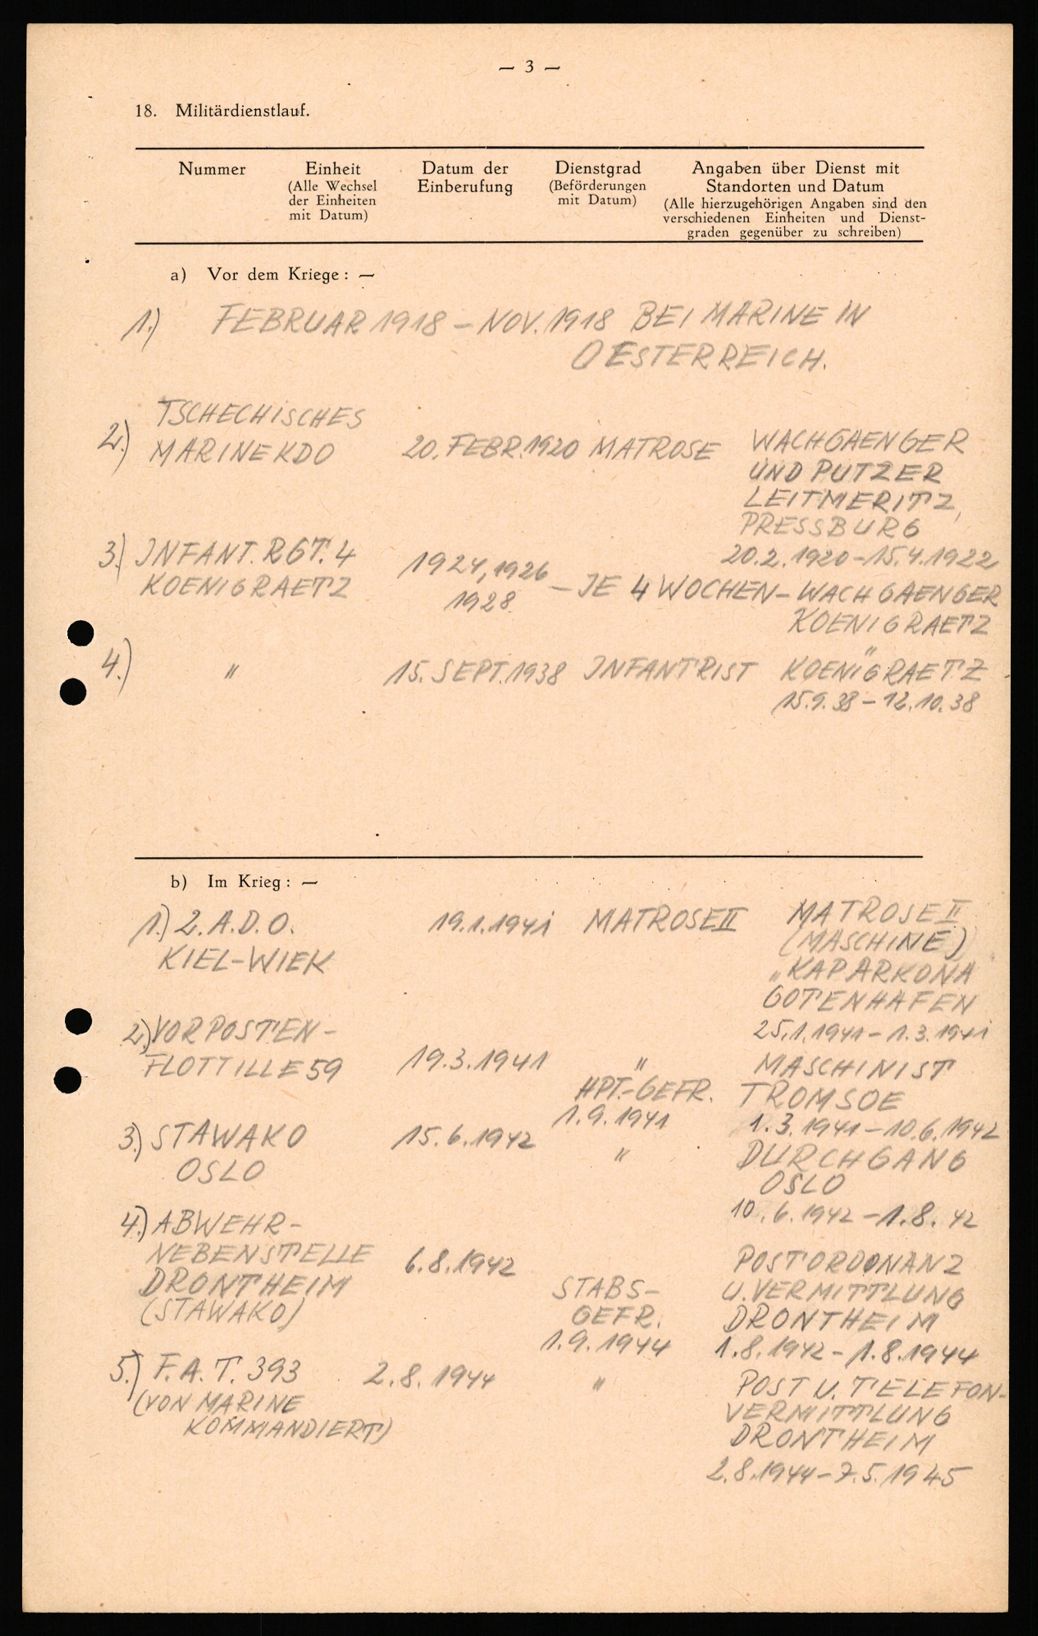 — 3 —
18. Militärdienstlauf.
Nummer
Einheit
(Alle Wechsel
der Einheiten
mit Datum)
Datum der
Einberufung
Dienstgrad
(Beförderungen
mit Datum)
Angaben über Dienst mit
Standorten und Datum
(Alle hierzugehörigen Angaben sind den
verschiedenen Einheiten und Dienst-
graden gegenüber zu schreiben)
a) Vor dem Kriege: —
1.) FEBRUAR 1918 – NOV. 1918 BEI MARINE IN
OESTERREICH.
2.) TSCHECHISCHES
MARINEKDO 20. FEBR. 1920 MATROSE WACHGAENGER
UND PUTZER
LEITMERITZ,
PRESSBURG
20.2.1920–15.4.1922
3.) INFANT. RGT. 4
KOENIGRAETZ
1924, 1926
1928 – JE 4 WOCHEN – WACHGAENGER
KOENIGRAETZ
4.) " 15. SEPT. 1938 INFANTRIST KOENIGRAETZ
15.9.38 – 12.10.38
b) Im Krieg: —
1.) 2. A. D. O.
KIEL-WIEK
19.1.1941 MATROSE II MATROSE II
(MASCHINE)
„KAP ARKONA
GOTENHAFEN
25.1.1941 – 1.3.1941
2.) VORPOSTEN-
FLOTTILLE 59
19.3.1941 "
HPT.-GEFR.
1.9.1941
MASCHINIST
TROMSOE
1.3.1941 – 10.6.1942
3.) STAWAKO
OSLO
15.6.1942 "
DURCHGANG
OSLO
10.6.1942 – 1.8.42
4.) ABWEHR-
NEBENSTELLE
DRONTHEIM
(STAWAKO)
6.8.1942
STABS-
GEFR.
1.9.1944
POSTORDONANZ
U. VERMITTLUNG
DRONTHEIM
1.8.1942 – 1.8.1944
5.) F. A. T. 393
(VON MARINE
KOMMANDIERT)
2.8.1944 "
POST U. TELEFON-
VERMITTLUNG
DRONTHEIM
2.8.1944 – 7.5.1945